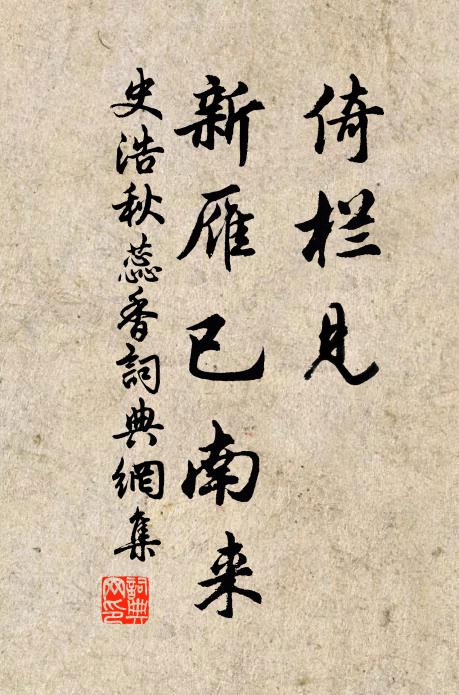 倚栏见
新雁已南来
史浩秋蕊香詞典網集
詞典网印